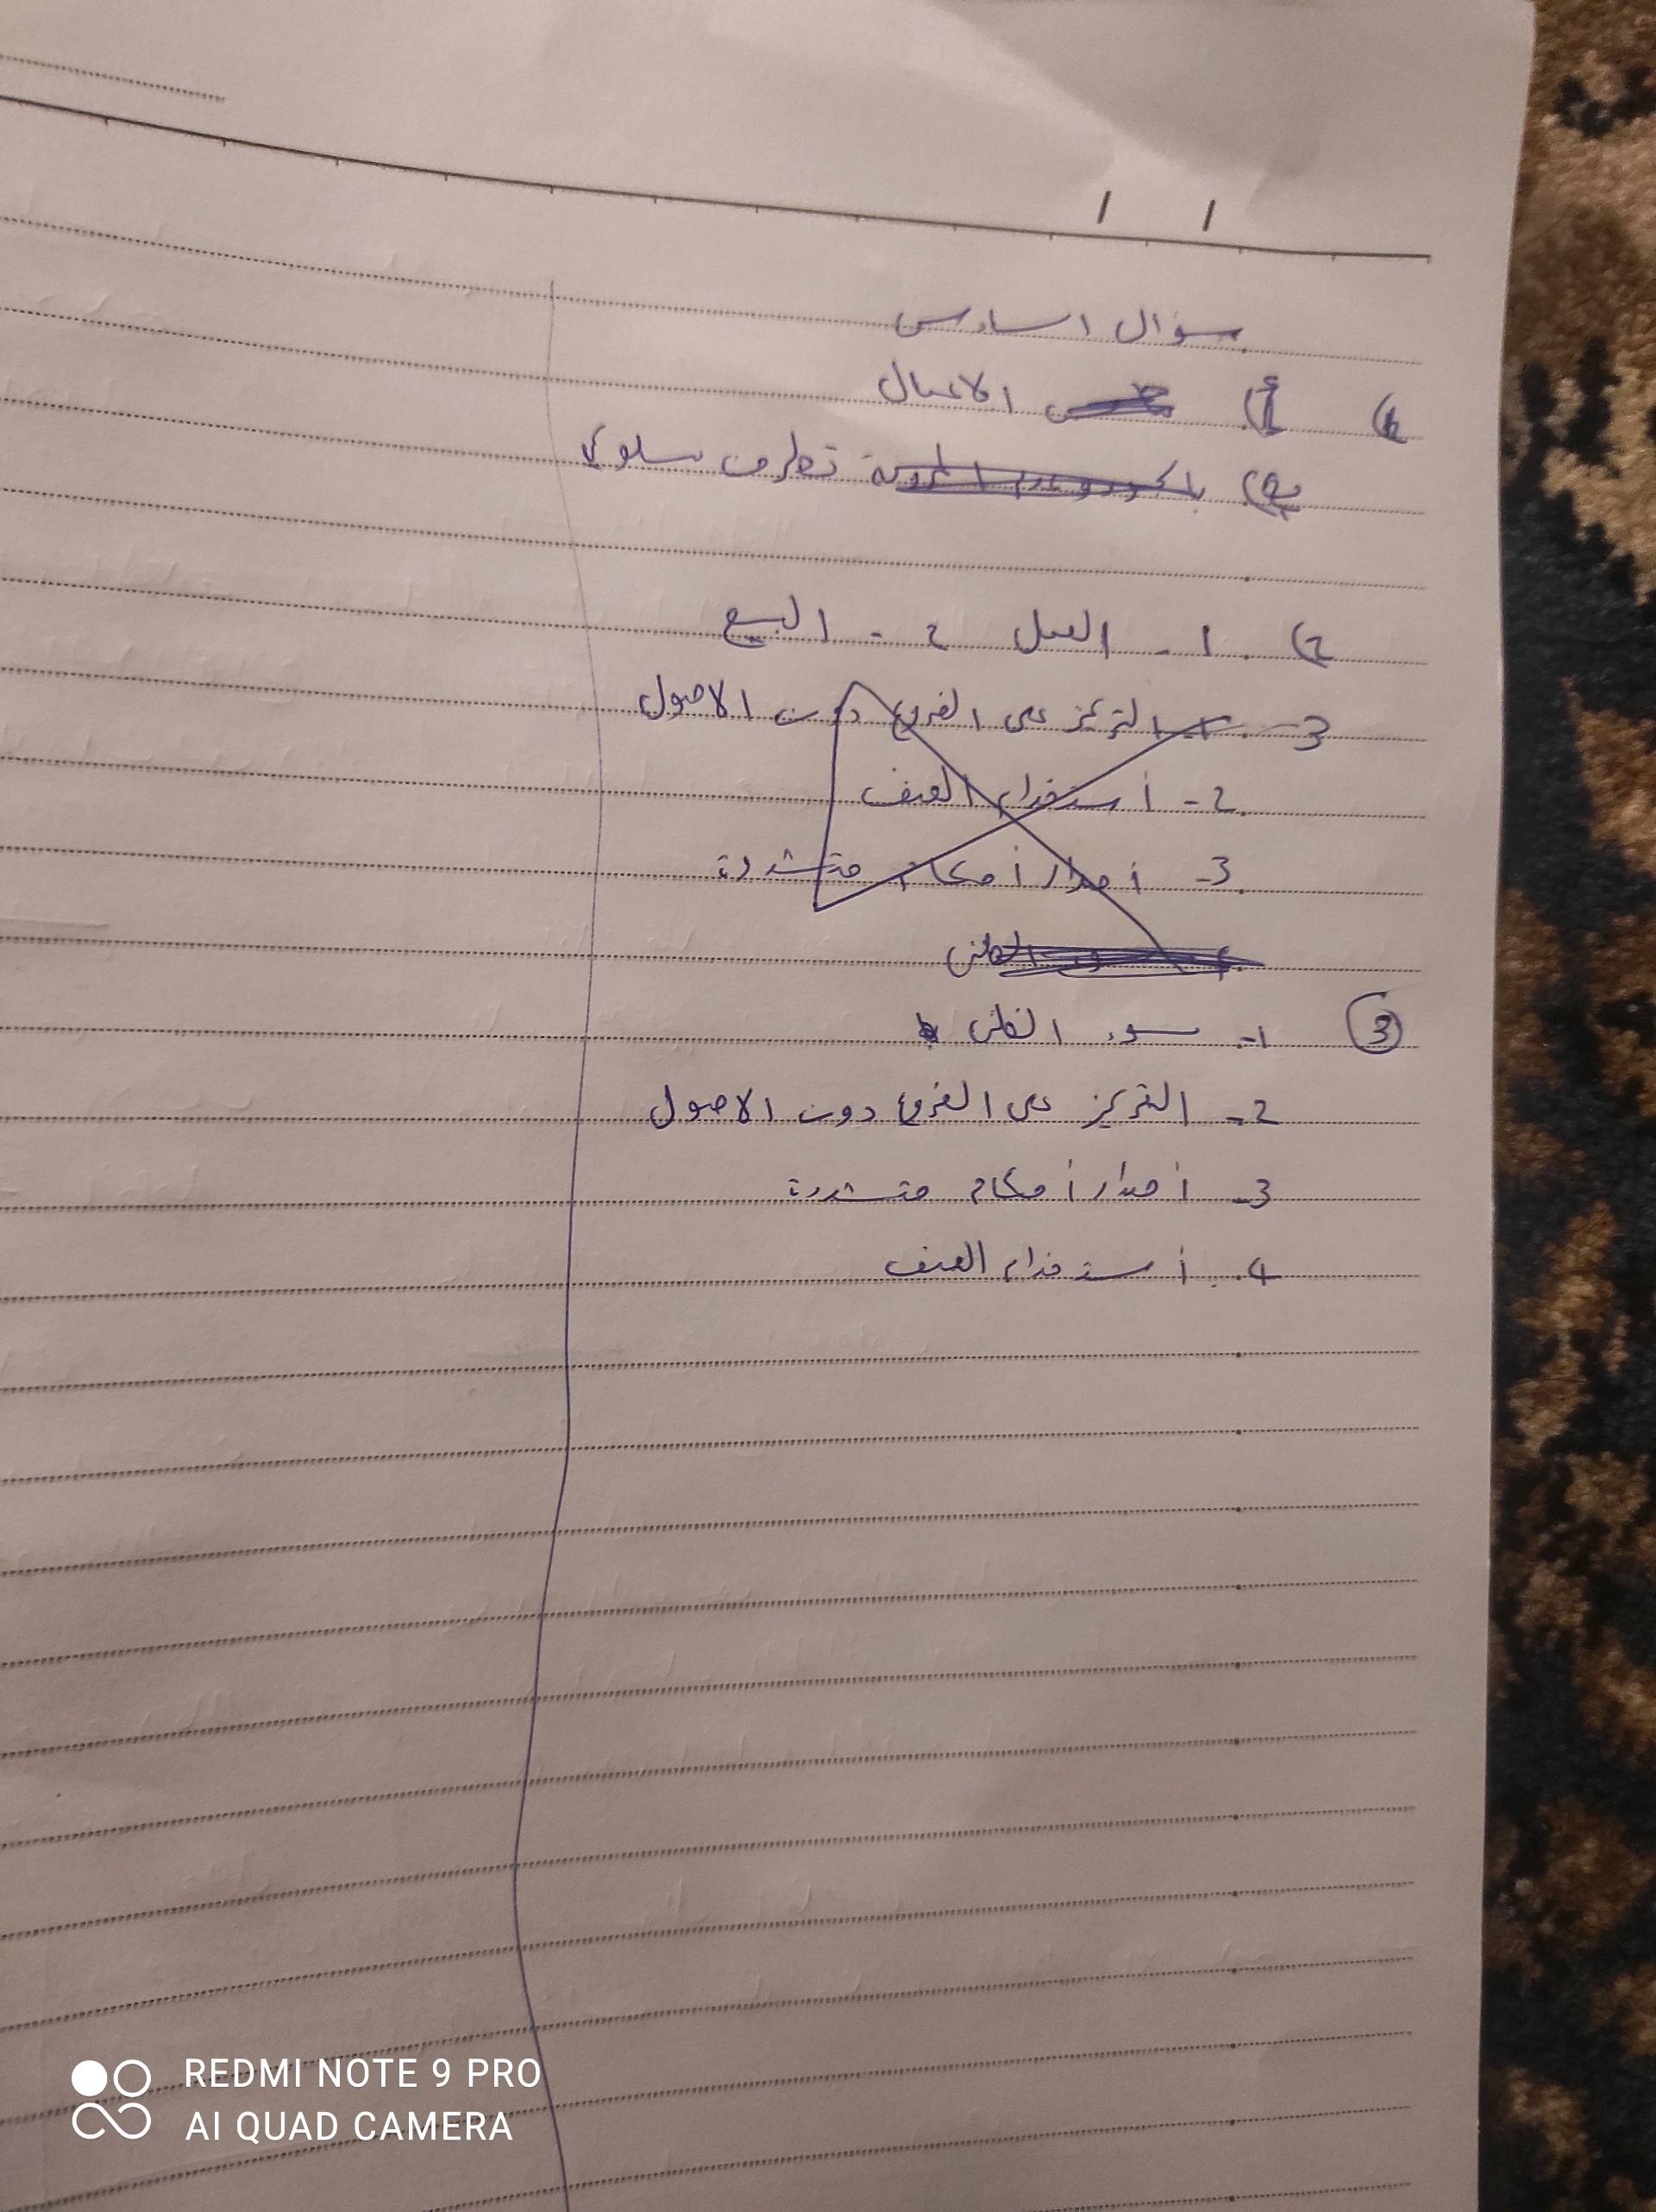 سؤال اسادس
أ) الاعمال
ب) تطرف سلوك
2) 1 - العمل 2 - البيع
3 - 1 - التركيز على الفروع دون الاصول
2 - أستخدام العنف
3 - أصدار أحكام متشددة
3 1 - سوء الظن
2 - التركيز على الفروع دون الاصول
3 - أصدار أحكام متشددة
4 - أستخدام العنف
REDMI NOTE 9 PRO
AI QUAD CAMERA